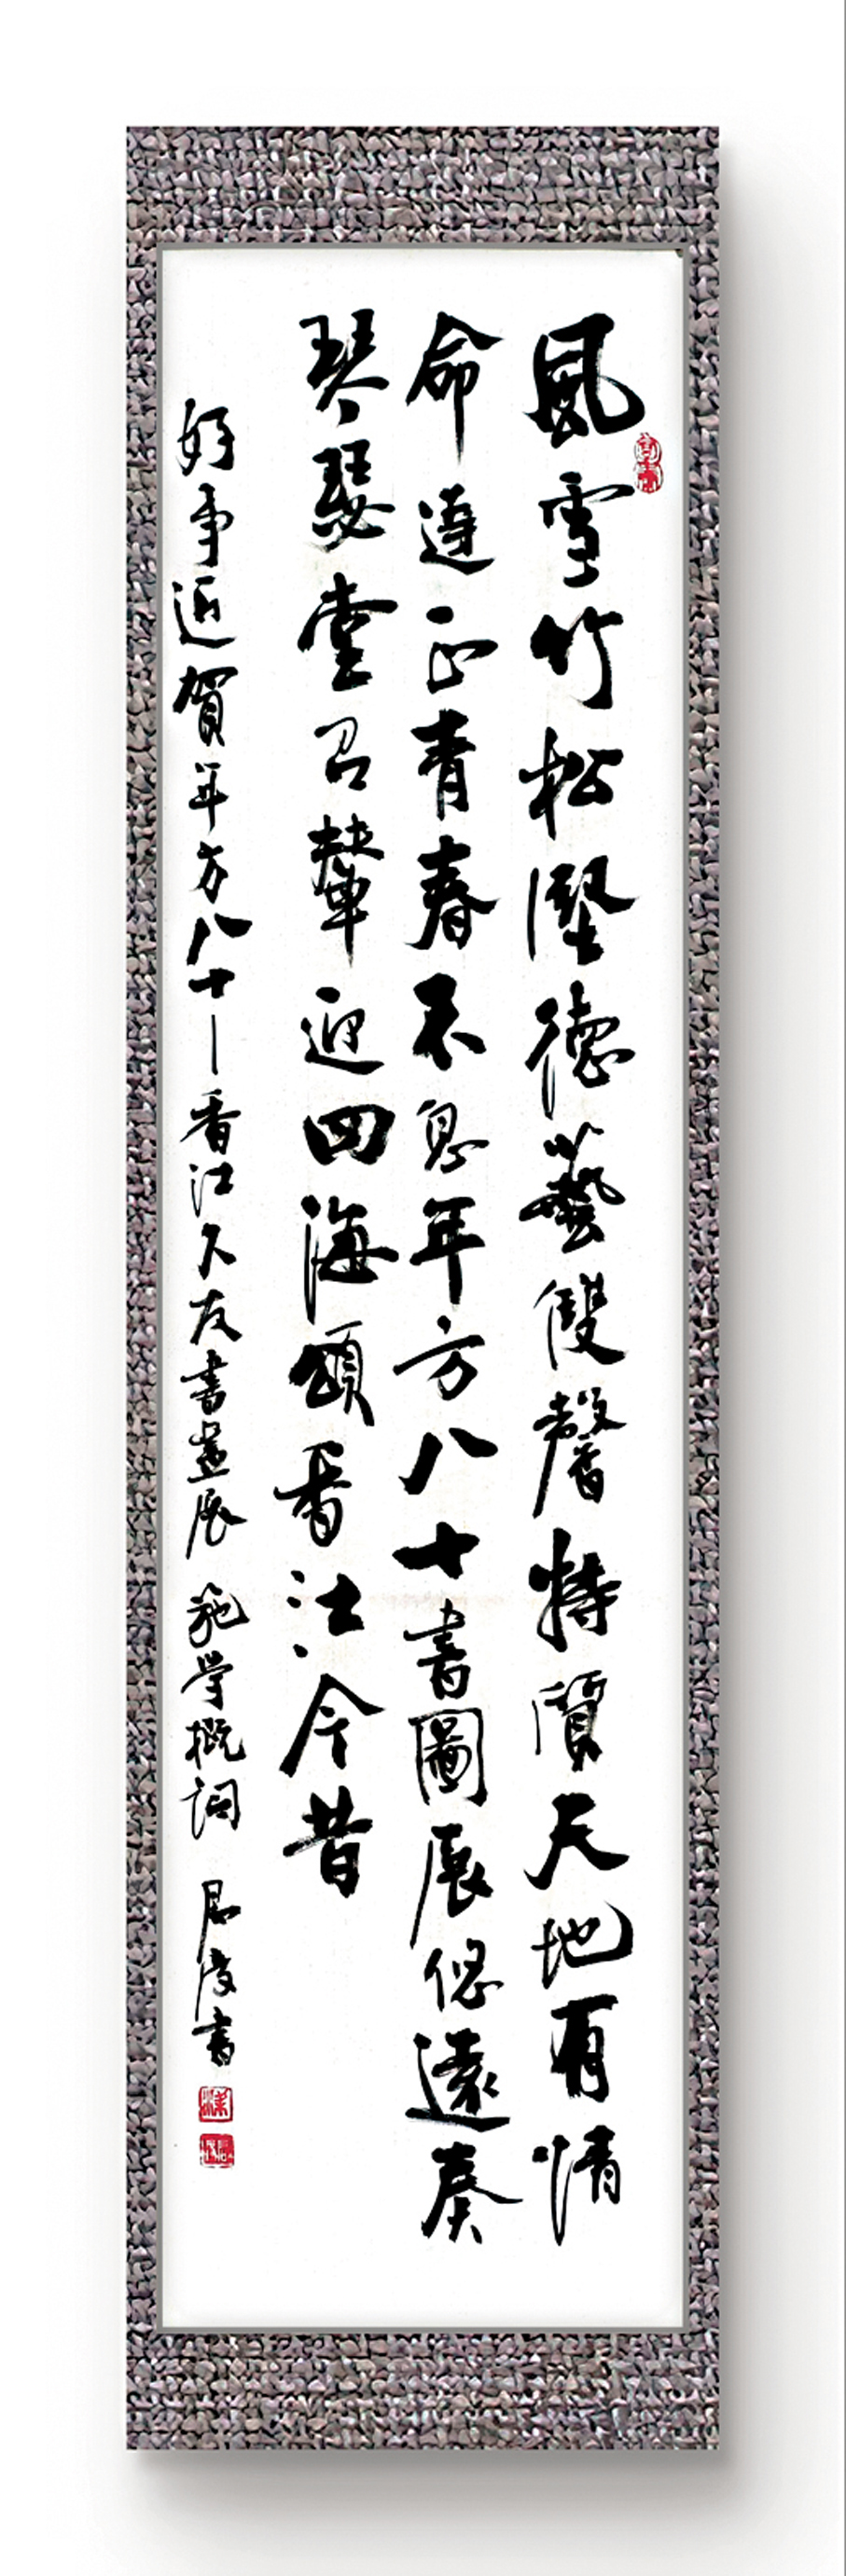 風雪竹松堅德藝雙馨特質天地有情
命遵正青春不息年方八十書圖展悠遠奏
琴瑟堂召輦迎四海頌香江今昔
好事近賀年方八十—香江友書畫展 施學概詞 書